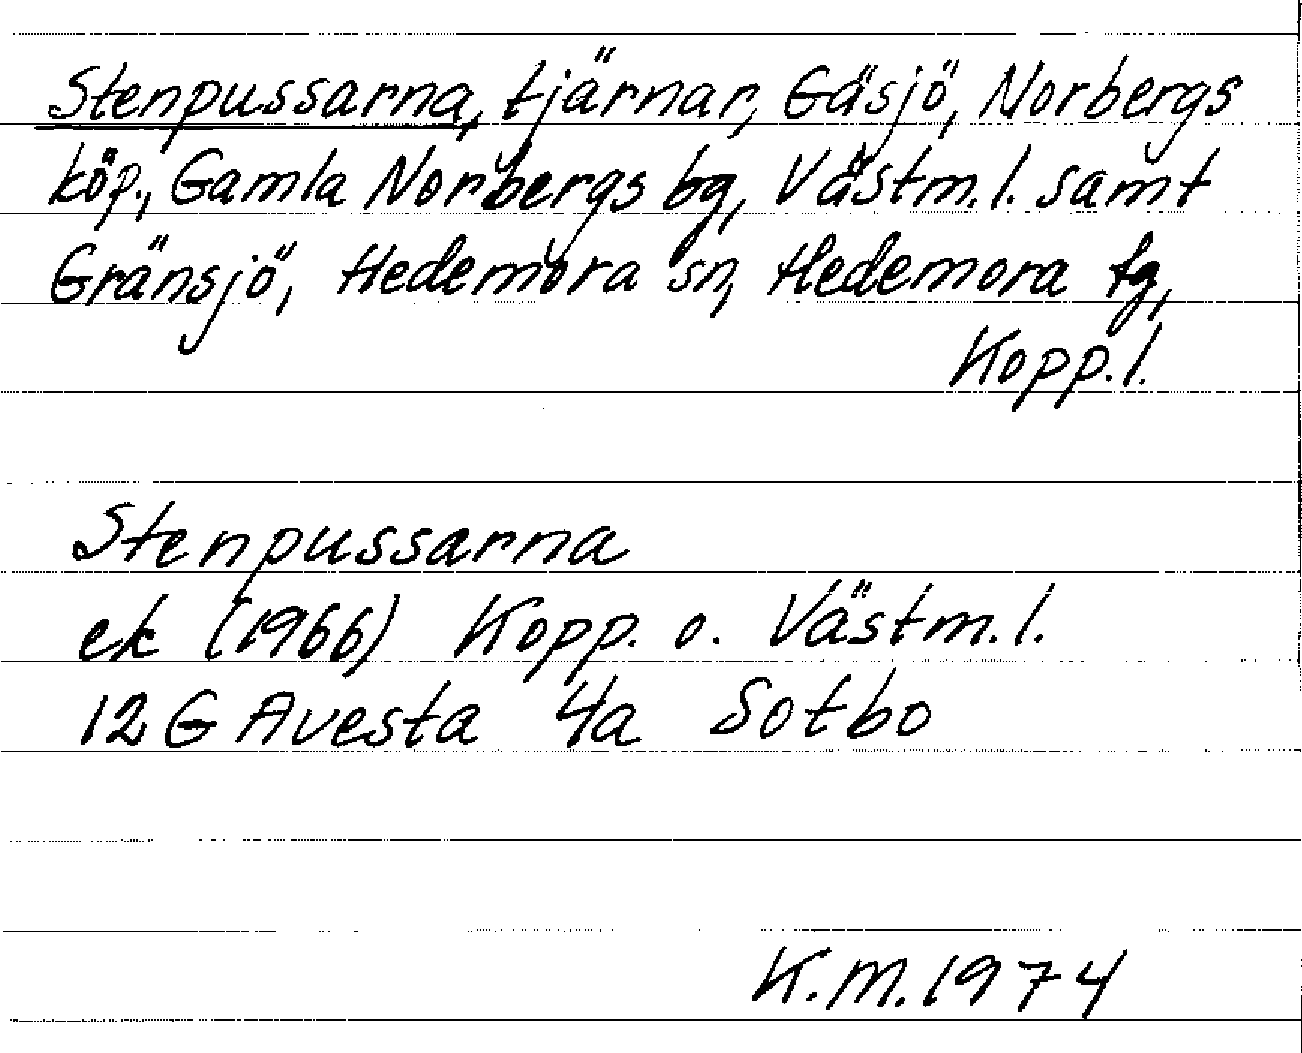 Stenpussarna, tjärnar, Gäsjö, Norbergs
köp., Gamla Norbergs bg, Västm.l. samt
Gränsjö, Hedemora sn, Hedemora tg,
Kopp.l.
Stenpussarna
ek (1966) Kopp. o. Västm.l.
12G Avesta 4a Sotbo
K.M.1974